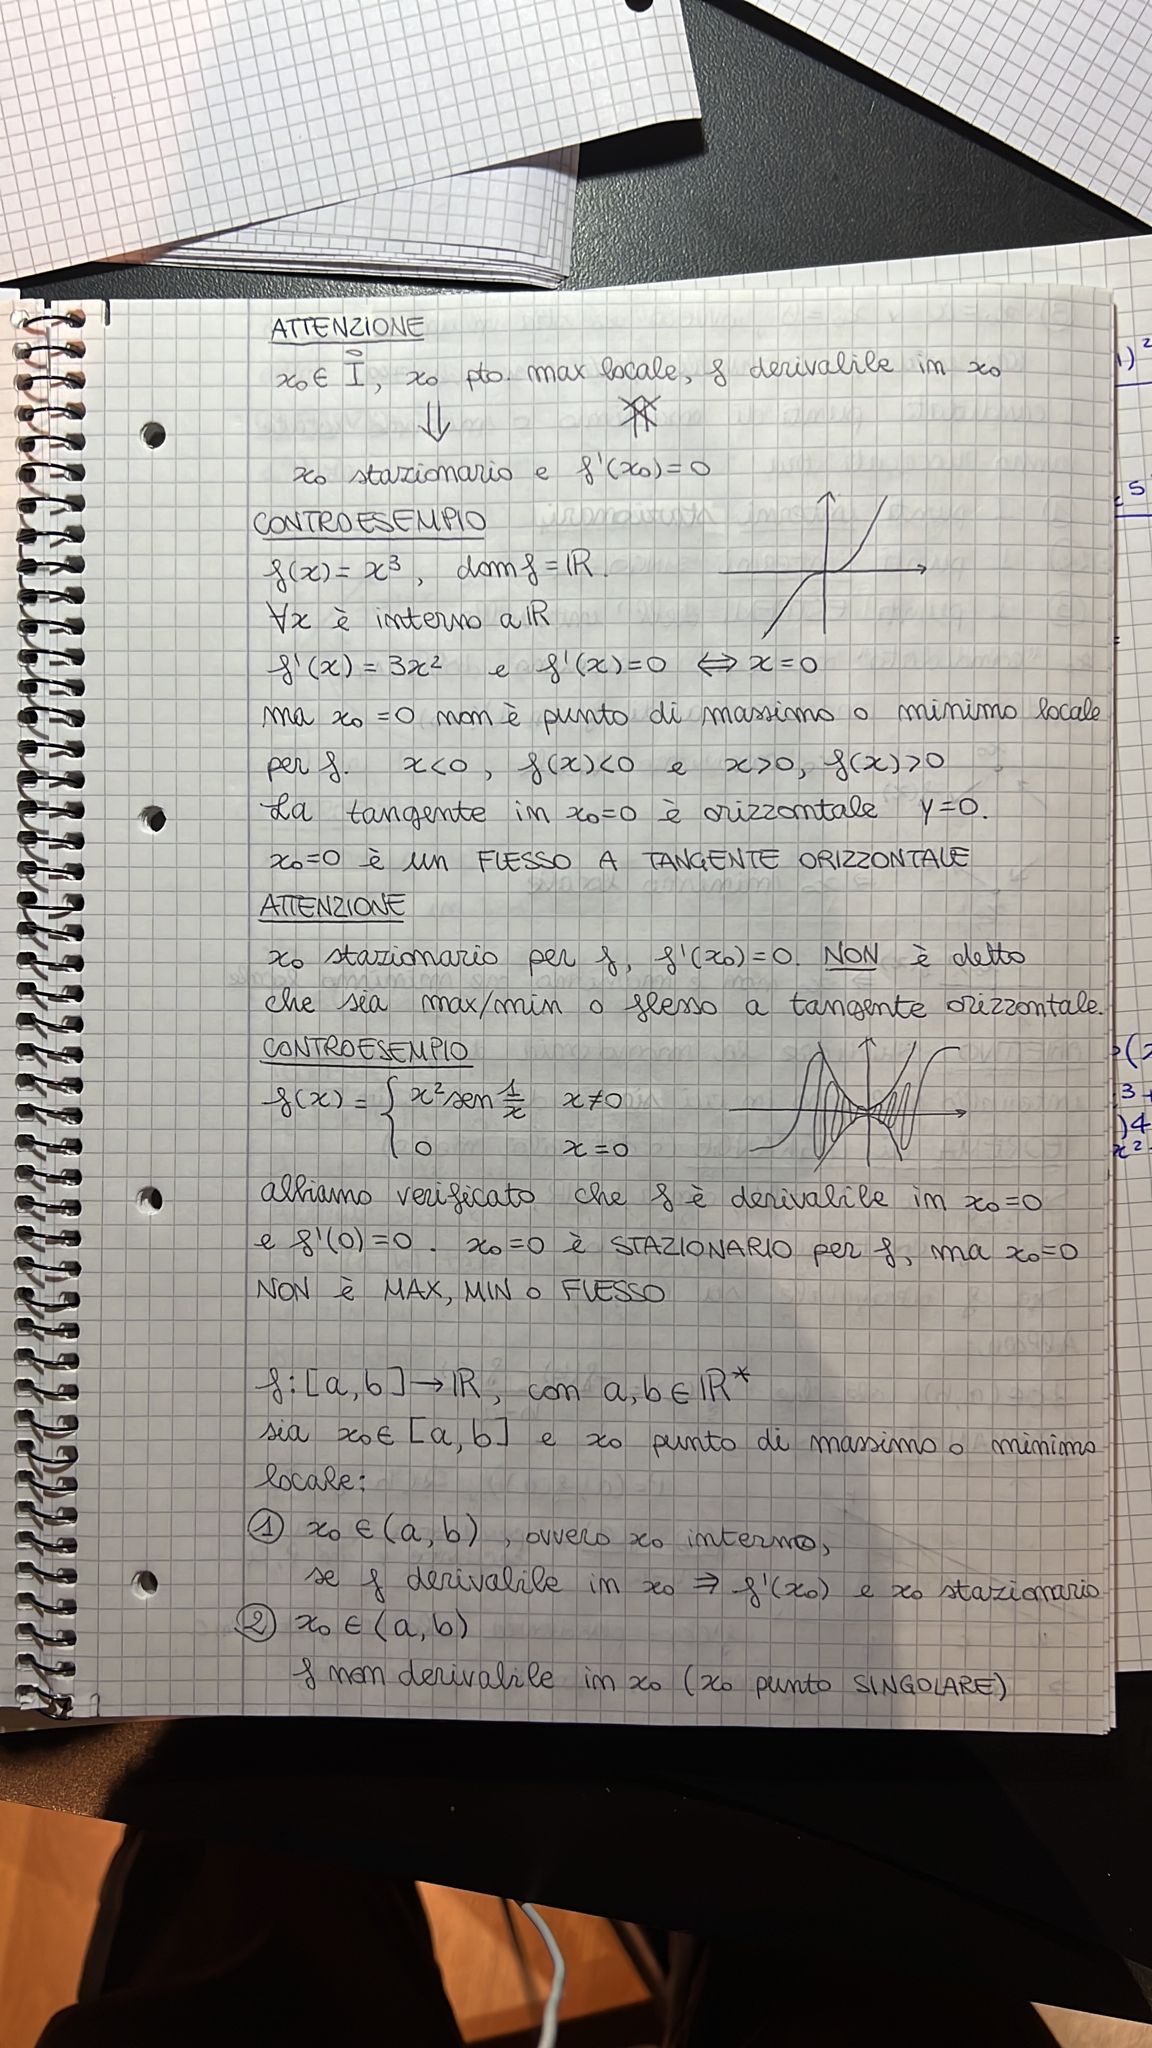 ATTENZIONE
x₀ ∈ I̊, x₀ pto. max locale, f derivabile in x₀
⇓ ⇑
x₀ stazionario e f'(x₀)=0
CONTROESEMPIO
f(x) = x³, dom f = ℝ.
∀x è interno a ℝ
f'(x) = 3x² e f'(x)=0 ⇔ x=0
ma x₀=0 non è punto di massimo o minimo locale
per f. x<0, f(x)<0 e x>0, f(x)>0
La tangente in x₀=0 è orizzontale y=0.
x₀=0 è un FLESSO A TANGENTE ORIZZONTALE
ATTENZIONE
x₀ stazionario per f, f'(x₀)=0. NON è detto
che sia max/min o flesso a tangente orizzontale.
CONTROESEMPIO
f(x) = { x² sen 1/x x≠0
0 x=0
abbiamo verificato che f è derivabile in x₀=0
e f'(0)=0. x₀=0 è STAZIONARIO per f, ma x₀=0
NON è MAX, MIN o FLESSO
f: [a, b] → ℝ, con a, b ∈ ℝ*
sia x₀ ∈ [a, b] e x₀ punto di massimo o minimo
locale:
① x₀ ∈ (a, b), ovvero x₀ interno,
se f derivabile in x₀ ⇒ f'(x₀) e x₀ stazionario
② x₀ ∈ (a, b)
f non derivabile in x₀ (x₀ punto SINGOLARE)